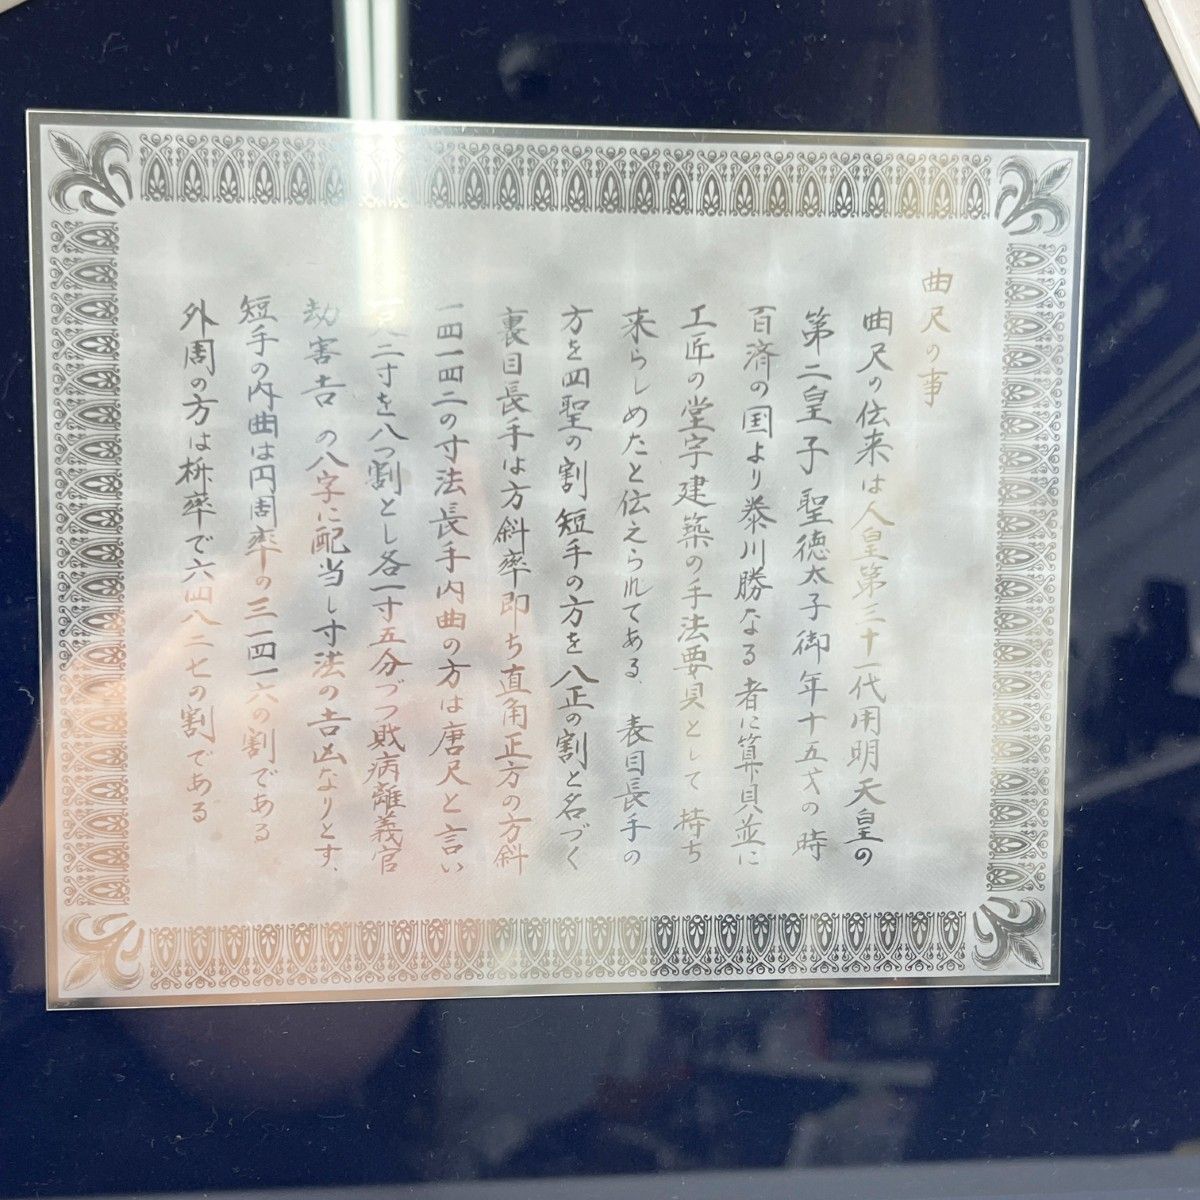 曲尺の事
曲尺の伝来は人皇第三十一代用明天皇の
第二皇子聖徳太子御年十五才の時
百済の国より秦川勝なる者に算貝並に
工匠の堂宇建築の手法要具として持ち
来らしめたと伝えられてある。表目長手の
方を四聖の割短手の方を八正の割と名づく
裏目長手は方斜率即ち直角正方の方斜
一四一四二の寸法長手内曲の方は唐尺と言い
尺二寸を八つ割とし各一寸五分づつ敗病離義官
劫害吉の八字に配当し寸法の吉凶なりとす。
短手の内曲は円周率の三一四一六の割である
外周の方は桝率で六四八二七の割である